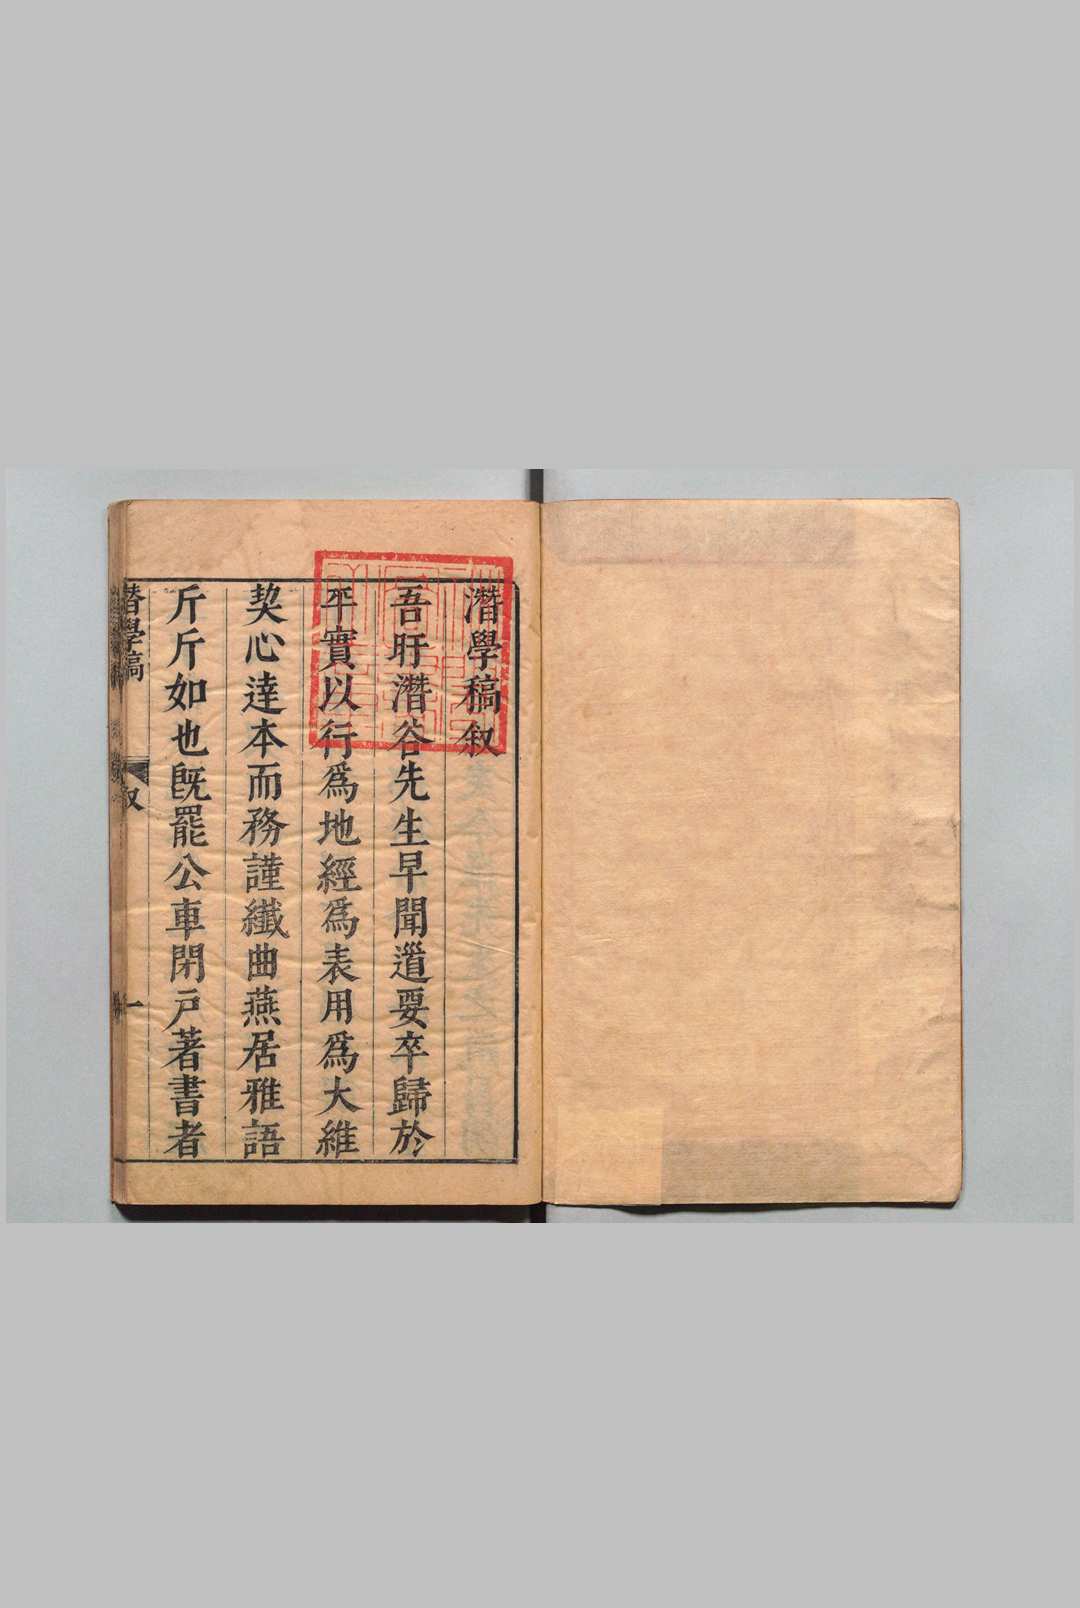 潛學稿叙
吾盱潛谷先生早聞道要卒歸於
平實以行爲地經爲表用爲大維
契心達本而務謹纎曲燕居雅語
斤斤如也旣罷公車閉戸著書者
潛學稿
叙
一